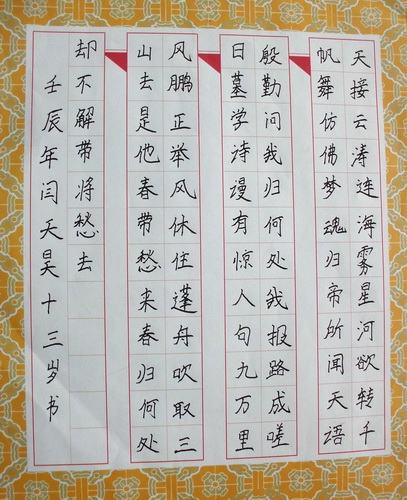 天接云涛连海雾星河欲转千
帆舞仿佛梦魂归帝所闻天语
殷勤问我归何处我报路成嗟
日暮学诗谩有惊人句九万里
风鹏正举风休住蓬舟吹取三
山去是他春带愁来春归何处
却不解带将愁去
壬辰年闫天昊十三岁书